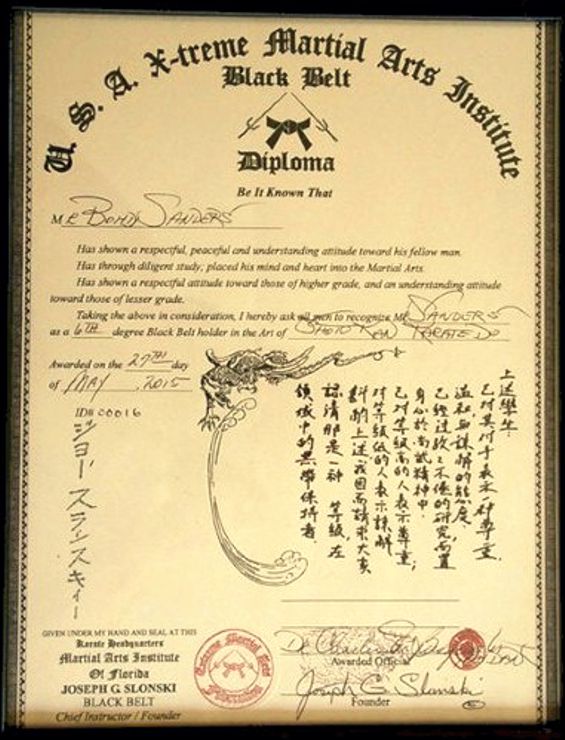 U. S. A. X-treme Martial Arts Institute
Black Belt
Diploma
Be It Known That
Mr Sanders
Has shown a respectful, peaceful and understanding attitude toward his fellow man.
Has through diligent study, placed his mind and heart into the Martial Arts.
Has shown a respectful attitude toward those of higher grade, and an understanding attitude
toward those of lesser grade.
Taking the above in consideration, I hereby ask all men to recognize Mr Sanders
as a 6TH degree Black Belt holder in the Art of Shoto Kan Karate Do
Awarded on the 27TH day
of May, 2015
ID# 00016
ジョー スランスキィー
上述學生
已對其付予表示一种尊重
溫和而諒解的態度
已經过孜孜不倦的研究而置
身心於尚武精神中
已对等級高的人表示尊重;
对等級低的人表示諒解
上述 我因而請求大家
認清那是一种 等級 在
領域中的黑帶保持者
GIVEN UNDER MY HAND AND SEAL AT THIS
Karate Headquarters
Martial Arts Institute
Of Florida
JOSEPH G. SLONSKI
BLACK BELT
Chief Instructor / Founder
Extreme Martial Arts
Dr. Charles
Awarded Official
Joseph G. Slonski
Founder